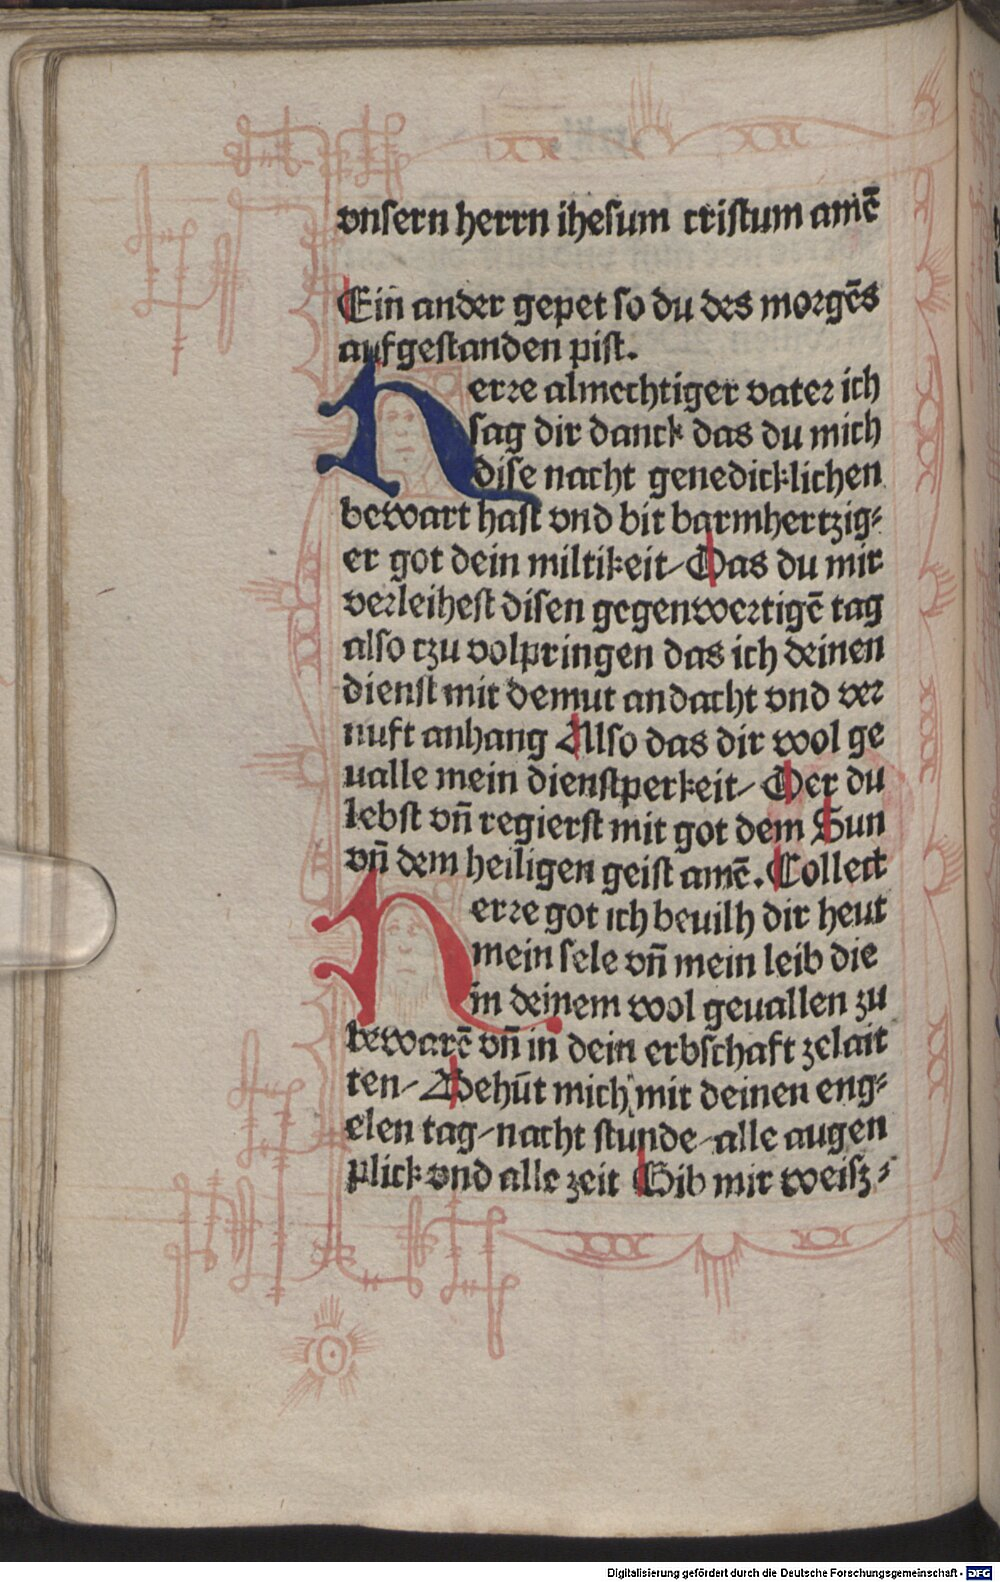 vnsern herrn ihesum cristum amē
Ein ander gepet so du des morgēs
aufgestanden pist.
Herre almechtiger vater ich
sag dir danck das du mich
dise nacht genedicklichen
bewart hast vnd bit barmhertzig⸗
er got dein miltikeit/ Das du mir
verleihest disen gegenwertigē tag
also tzu volpringen das ich deinen
dienst mit demut andacht vnd ver
nuft anhang Also das dir wol ge
ualle mein dienstperkeit/ Der du
lebst vn̄ regierst mit got dem Sun
vn̄ dem heiligen geist amē. Collect
Herre got ich beuilh dir heut
mein sele vn̄ mein leib die
in deinem wol geuallen zu
bewarē vn̄ in dein erbschaft zelait
ten/ Behūt mich mit deinen eng⸗
elen tag/nacht stunde/alle augen
plick vnd alle zeit Gib mir weisz⸗
Digitalisierung gefördert durch die Deutsche Forschungsgemeinschaft - DFG